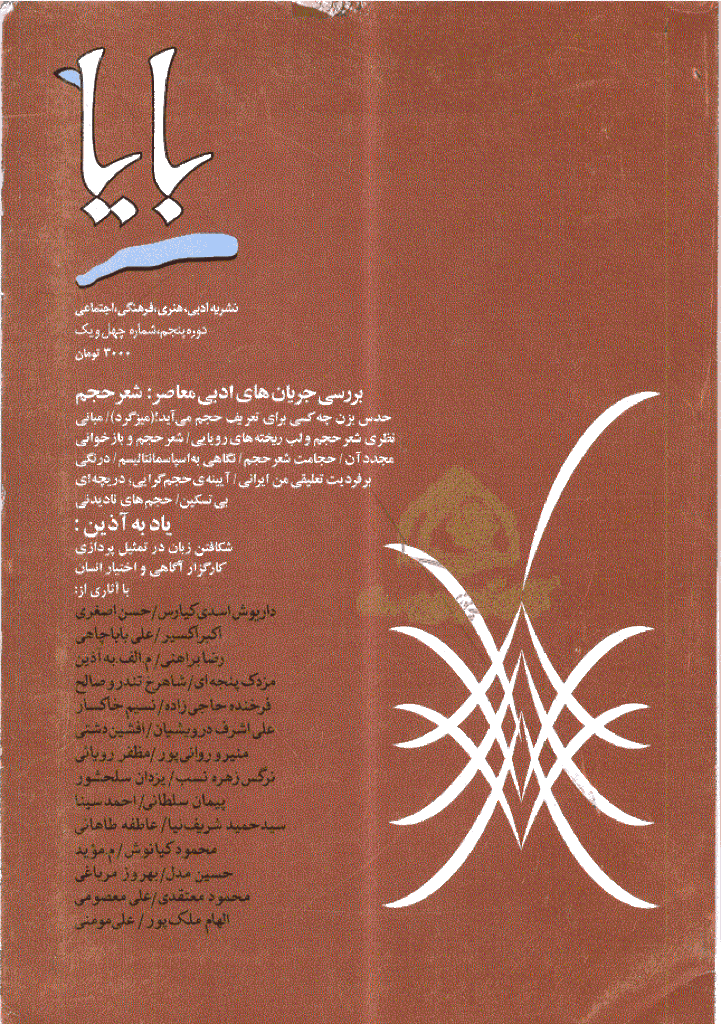 بایا
نشریه ادبی، هنری، فرهنگی، اجتماعی
دوره پنجم، شماره چهل و یک
۳۰۰۰ تومان
بررسی جریان های ادبی معاصر: شعر حجم
حدس بزن چه کسی برای تعریف حجم می‌آید!(میزگرد)/ مبانی
نظری شعر حجم و لب ریخته های رویایی/ شعر حجم و بازخوانی
مجدد آن/ حجامت شعر حجم/ نگاهی به اسپاسمانتالیسم/ درنگی
بر فردیت تعلیقی من ایرانی/ آیینه‌ی حجم‌گرایی، دریچه‌ای
بی تسکین/ حجم های نادیدنی
یاد به آذین :
شکافتن زبان در تمثیل پردازی
کارگزار آگاهی و اختیار انسان
با آثاری از:
داریوش اسدی کیارس/ حسن اصغری
اکبر اکسیر/ علی باباچاهی
رضا براهنی/ م.الف.به آذین
مزدک پنجه ای/ شاهرخ تندرو صالح
فرخنده حاجی زاده/ نسیم خاکسار
علی اشرف درویشیان/ افشین دشتی
منیرو روانی پور/ مظفر رویائی
نرگس زهره نسب/ یزدان سلحشور
پیمان سلطانی/ احمد سینا
سیدحمید شریف نیا/ عاطفه طاهائی
محمود کیانوش/ م.مؤید
حسین مدل/ بهروز مرباغی
محمود معتقدی/ علی معصومی
الهام ملک پور/ علی مومنی